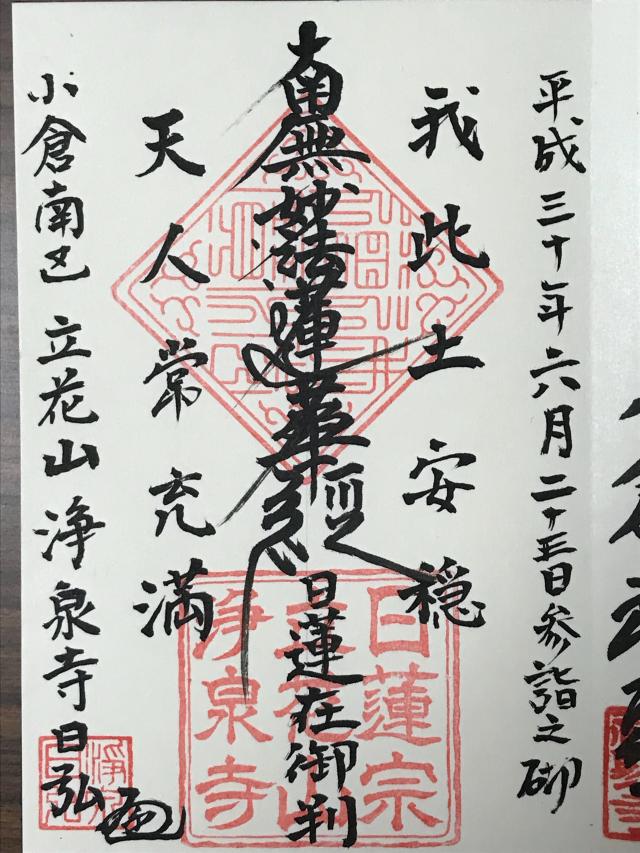 平成三十年六月二十五日参詣之砌
我此土安穏
南無妙法蓮華経
日蓮在御判
天人常充満
小倉南区 立花山 浄泉寺 日弘
日蓮宗
立花山
浄泉寺